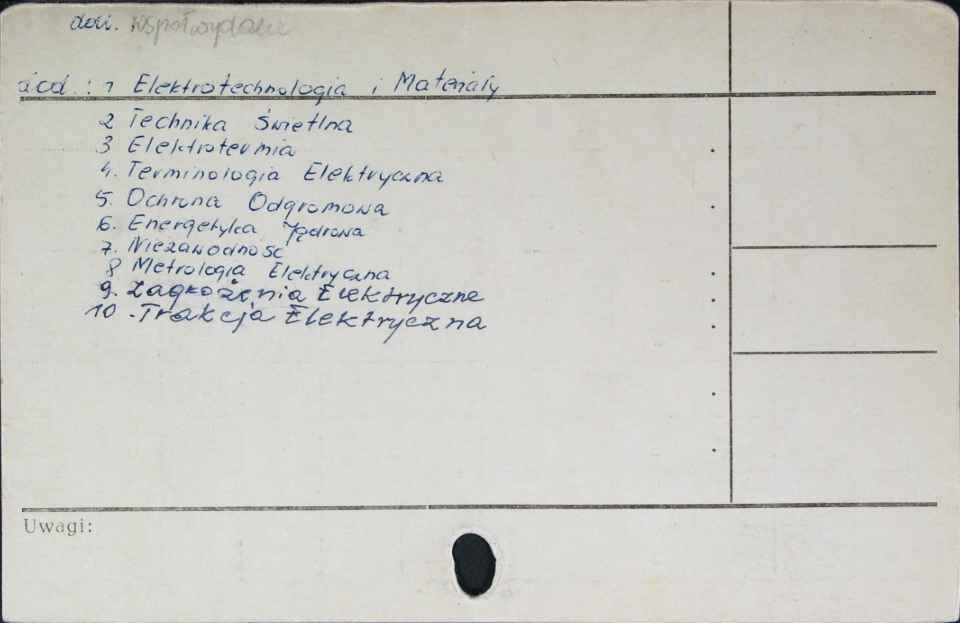 współwydanie
ácd.: 1 Elektrotechnologia i Materiały
2 Technika Świetlna
3 Elektrotermia
4. Terminologia Elektryczna
5. Ochrona Odgromowa
6. Energetyka Jądrowa
7. Niezawodność
8 Metrologia Elektryczna
9. Zagrożenia Elektryczne
10. Trakcja Elektryczna
Uwagi: